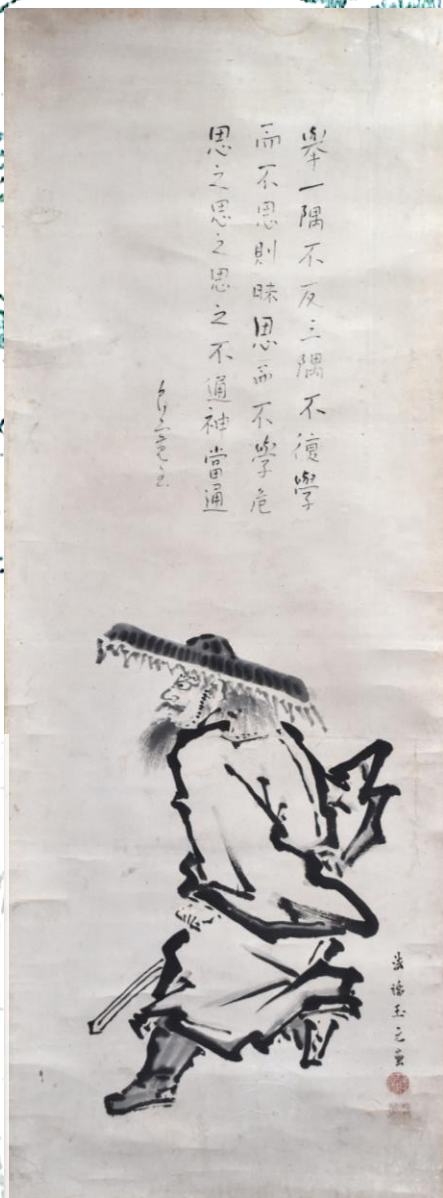 舉一隅不反三隅不復學
而不思則昧思而不學危
思之思之思之不通神當通
玉元